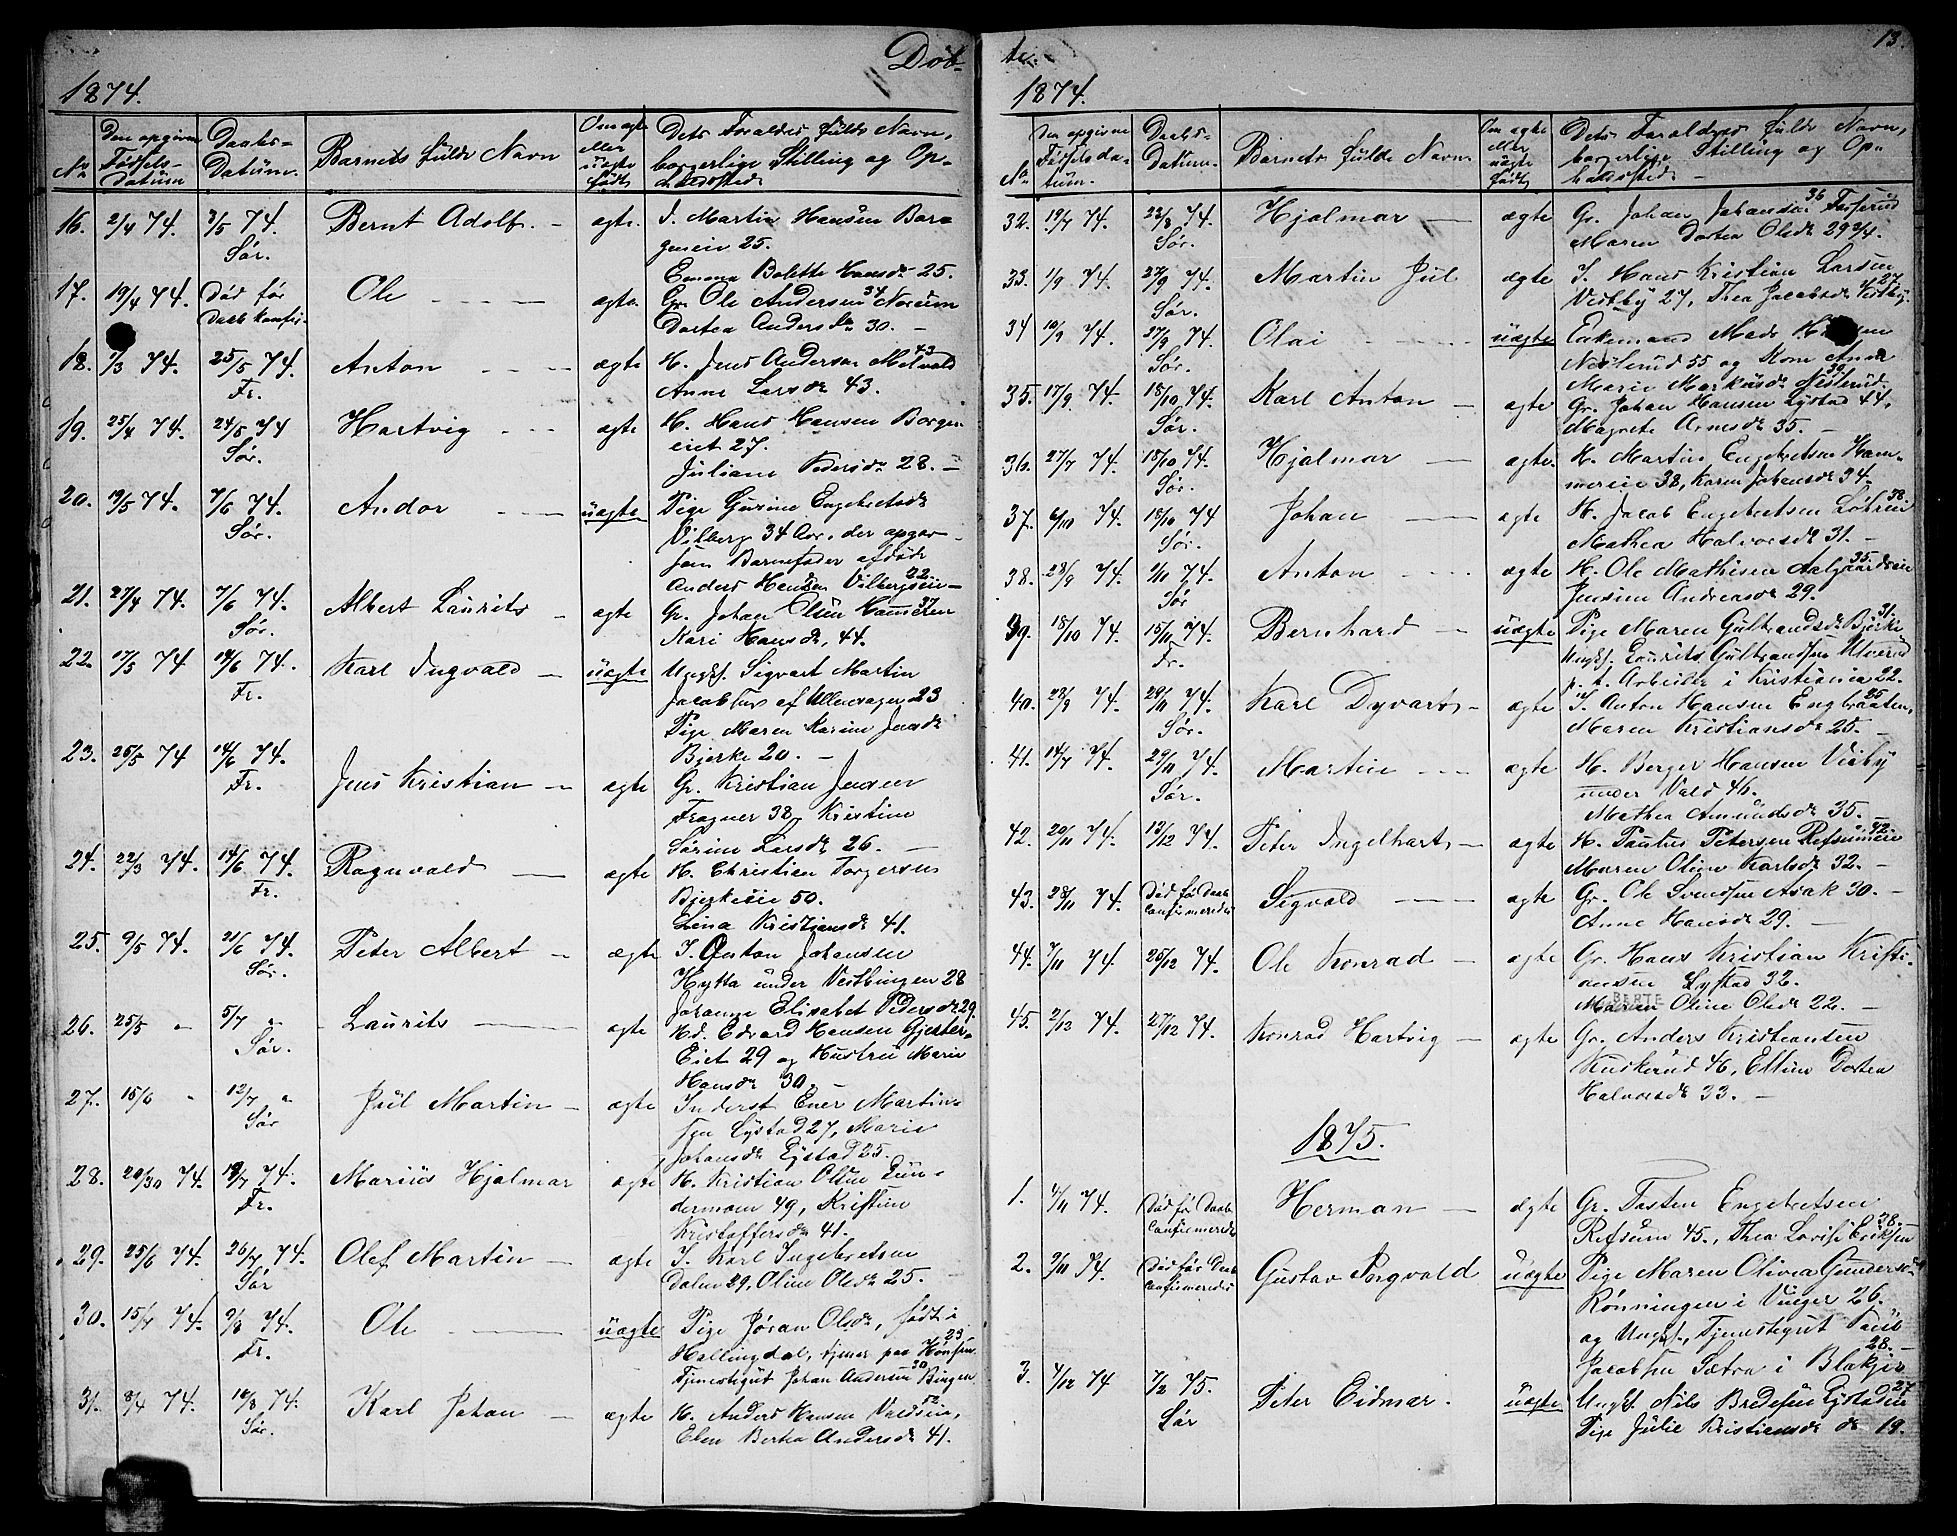 Døb-
1874.
No
Den opgivne Fødsels-datum
Daabs-Datum.
Barnets fulde Navn
Om ægte eller uægte født
Dets Forældres fulde Navn, borgerlige Stilling og Op-holdssted.
16. 2/4 74. 3/5 74. Bernt Adolf. — ægte. I. Martin Hansen Bor-
Sør. geneie 25.
Emma Bolette Hansdr 25.
17. 19/4 74. Død før Ole — ægte. Gr. Ole Andersen 34 Norum
Daab konfir. Dortea Andersdr 30. —
18. 1/3 74. 25/5 74. Anton — ægte H. Jens Andersen 43
Fr. Anne Larsdr 43.
19. 25/4 74. 24/5 74 Hartvig — ægte H. Hans Hansen Borgen
Sør. eiet 27.
Juliane Pedersdr 28. —
20. 19/5 74. 7/6 74. Andor — uægte Pige Gurine Engebretsdr
Sør. Vilberg 34 Aar, der opgav
som Barnefader afdøde
Anders Hansen Vilbergeie 22 —
21. 27/4 74. 7/6 74. Albert Laurits — ægte Gr. Johan Olsen 37
Sør. Kari Hansdr, 44.
22. 17/5 74 14/6 74. Karl Ingvald — uægte Ungk. Sigvart Martin
Fr. Jacobsen af Ullensager 23
Pige Maren Karine Jensdr
Bjerke 20. —
23. 25/5 74 14/6 74. Jens Kristian — ægte Gr. Kristian Jensen
Fr. Fragner 38, Kristine
Sørine Larsdr 26. —
24. 22/3 74. 14/6 74. Ragnvald — ægte H. Christian Torgersen
Fr. Bjerkeeie 50.
Lina Kristiansdr 41.
25. 9/5 74. 21/6 74. Peter Albert — ægte I. Anton Johansen
Sør. Hytta under Vestbingen 28
Johanne Elisabet Pedersdr 29.
26. 25/5 " 5/7 " Laurits — ægte Hd. Edvard Hansen Gjester-
Sør. Eiet 29 og Hustru Marie
Hansdr 30. —
27. 15/6 " 12/7 " Jul Martin — ægte Inderst Ener Martin-
Sør sen Lystad 27, Marie
Johansdr Lystad 25.
28. 20/30 74. 19/7 74. Marius Hjalmar ægte H. Kristian Olsen Lun-
Fr. dermoen 49, Kristine
Kristoffersdr 41.
29. 25/6 74. 26/7 74. Olef Martin — ægte I. Karl Ingebretsen
Sør Dalen 29, Oline Olsdr 25. —
30. 15/7 74. 2/8 74. Ole — uægte Pige Jøran Olsdr, født i
Fr. Hallingdal, tjener paa Hønsen 23
Tjenestegut Johan Andersen 30 Bingen
31. 8/7 74. 16/8 74. Karl Johan — ægte H. Anders Hansen Valdseie, 52
Sør. Elen Berthe Andersdr 41.
te. 13.
1874.
No
Den opgivne Fødselsda-tum.
Daabs-datum.
Barnets fulde Navn.
Om ægte eller uægte født
Dets Forældres fulde Navn, borgerlige Stilling og Op-holdssted. —
32. 19/7 74. 23/8 74. Hjalmar — ægte Gr. Johan Johansen 36 Fosserud
Sør. Maren Dortea Olsdr 29 3/4.
33. 1/9 74. 27/9 74. Martin Jul ægte I. Hans Kristian Larsen
Sør. Vestby 27, Thea Jacobsdr 27 Vestby.
34 10/9 74. 27/9 74. Olai — uægte Enkemand Mads
Sør. Nesterud 55 og Kone Anne
Marie Markusdr 39 Nesterud.
35. 17/9 74. 18/10 74. Karl Anton — ægte Gr. Johan Hansen Lystad 44.
Sør. Magnete Arnesdr 35. —
36. 27/7 74. 18/10 74. Hjalmar — ægte. H. Martin Engebretsen Ham-
Sør. mereie 38, Karen Johansdr 34.
37. 6/10 74. 18/10 74 Johan — ægte H. Jacob Engebretsen Løkren 38.
Sør. Mathea Halvorsdr 31. —
38. 28/9 74. 1/11 74. Anton — ægte H. Ole Mathisen Aalgaardseie 35.
Sør Jensine Andreasdr 29.
39. 18/10 74. 15/11 74. Bernhard — uægte Pige Maren Gulbrandsdr Bjerke 31.
Fr. Ungk. Laurits Gulbrandsen Ulverud
p. t. Arbeider i Kristiania 22.
40. 23/9 74. 29/11 74. Karl Dyvart — ægte I. Anton Hansen 25 Engbraaten,
Sør. Maren Kristiansdr 25. —
41. 14/7 74. 29/11 74. Martin — ægte H. Berger Hansen Visby
Sør. under Vald 46.
Mathea Amundsdr 35. —
42. 20/11 74. 13/12 74. Peter Ingelhart — ægte H. Paulus Petersen Refsumeie 42.
Maren Oline Karlsdr 32. —
43. 28/11 74. Død før Daab Sigvald — ægte Gr. Ole Svendsen Asak 30. —
confirmeredes Anne Hansdr 29. —
44. 7/11 74. 25/12 74. Ole Konrad — ægte Gr. Hans Kristian Kristi-
ansen Lystad 32.
BERTE
Maren Oline Olsdr 22. —
45. 2/12 74. 27/12 74. Konrad Hartvig — ægte Gr. Anders Kristiansen
Kuskerud 46, Elline Dortea
Halvorsdr 33. —
1875.
1. 4/11 74. Død før Daab Herman — ægte Gr. Tosten Engebretsen
confirmeredes Refsum 45., Thea Lovise Eriksen 28. —
2. 2/11 74. Død før Daab Gustav Torgvald uægte Pige Maren Olivia Gundersdr
confirmeredes Rønningen i Vinger 26.
og Ungk., Tjenestegut Paul
Jacobsen Sætra i Blakjer 28. —
3. 4/12 74 7/2 75. Peter Eidmar. uægte Ungk. Nils Bredesen Lystadeie 27
Sør Pige Julie Kristiansdr do 19.